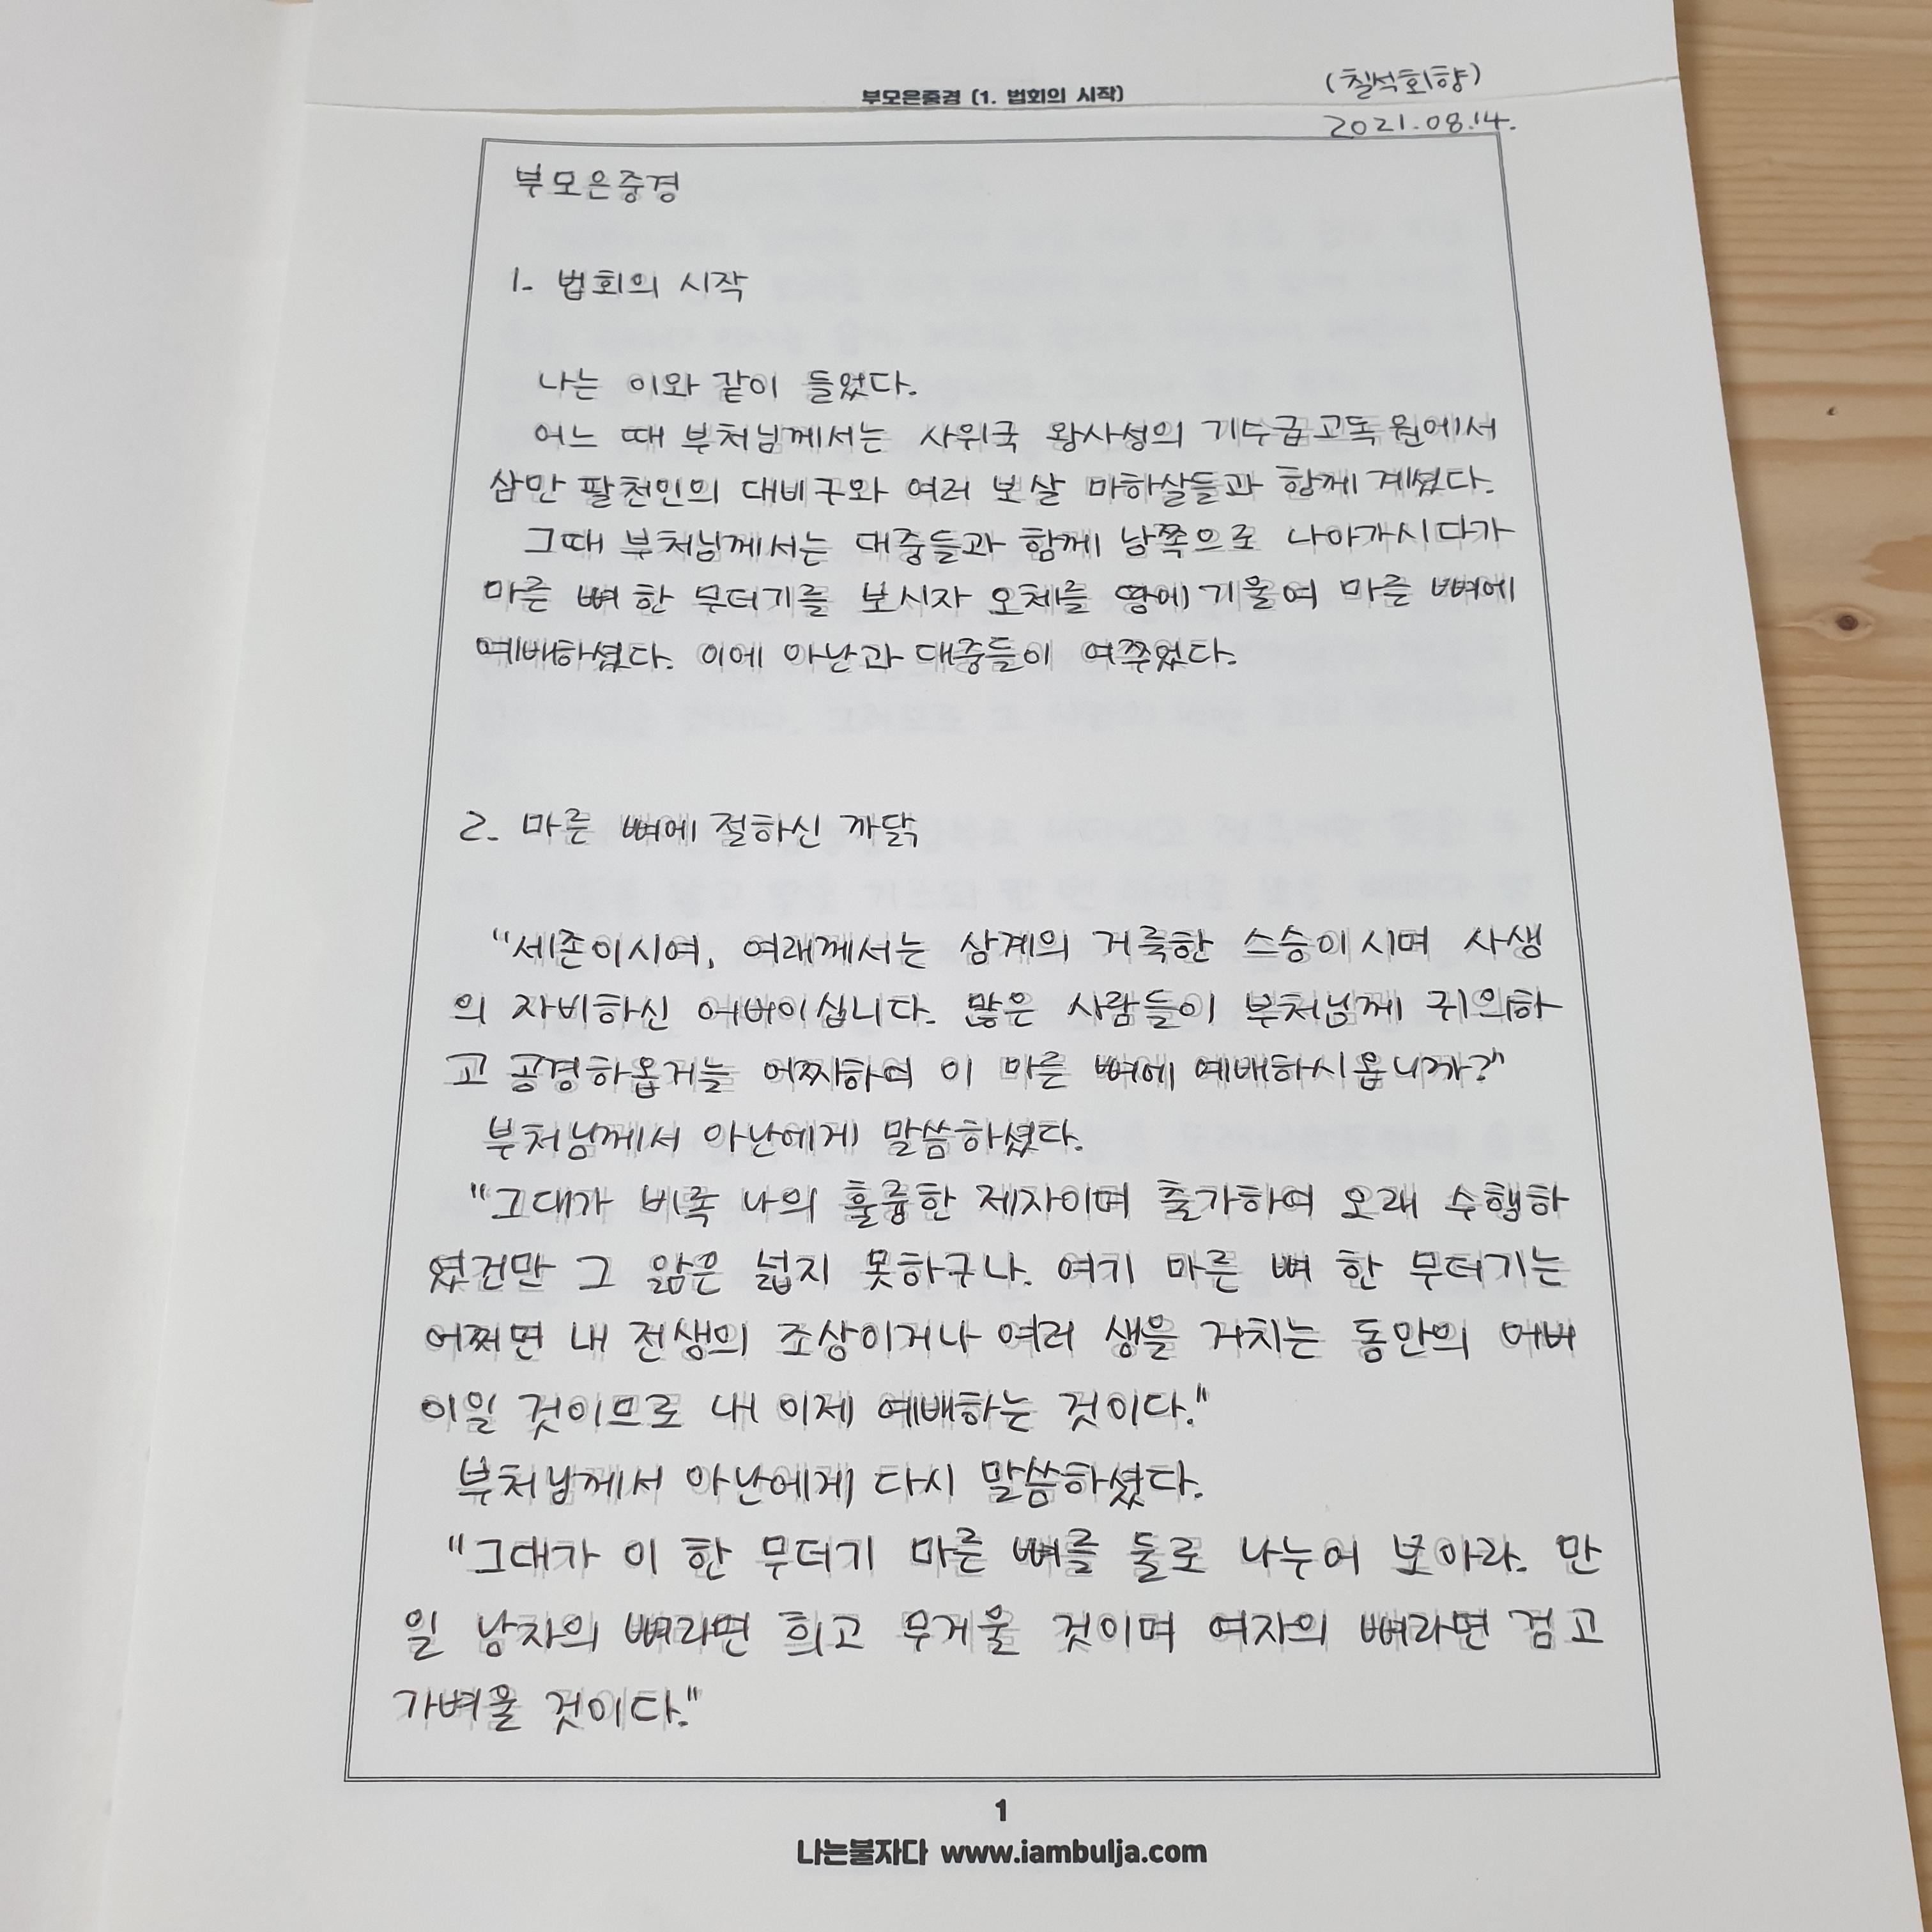 부모은중경 (1. 법회의 시작)
(칠석회향)
2021.08.14.
부모은중경
1. 법회의 시작
나는 이와 같이 들었다.
어느 때 부처님께서는 사위국 왕사성의 기수급고독원에서
삼만 팔천인의 대비구와 여러 보살 마하살들과 함께 계셨다.
그때 부처님께서는 대중들과 함께 남쪽으로 나아가시다가
마른 뼈 한 무더기를 보시자 오체를 땅에 기울여 마른 뼈에
예배하셨다. 이에 아난과 대중들이 여쭈었다.
2. 마른 뼈에 절하신 까닭
"세존이시여, 여래께서는 삼계의 거룩한 스승이시며 사생
의 자비하신 어버이십니다. 많은 사람들이 부처님께 귀의하
고 공경하옵거늘 어찌하여 이 마른 뼈에 예배하시옵니까?"
부처님께서 아난에게 말씀하셨다.
"그대가 비록 나의 훌륭한 제자이며 출가하여 오래 수행하
였건만 그 앎은 넓지 못하구나. 여기 마른 뼈 한 무더기는
어쩌면 내 전생의 조상이거나 여러 생을 거치는 동안의 어버
이일 것이므로 내 이제 예배하는 것이다."
부처님께서 아난에게 다시 말씀하셨다.
"그대가 이 한 무더기 마른 뼈를 둘로 나누어 보아라. 만
일 남자의 뼈라면 희고 무거울 것이며 여자의 뼈라면 검고
가벼울 것이다."
1
나는불자다 www.iambulja.com